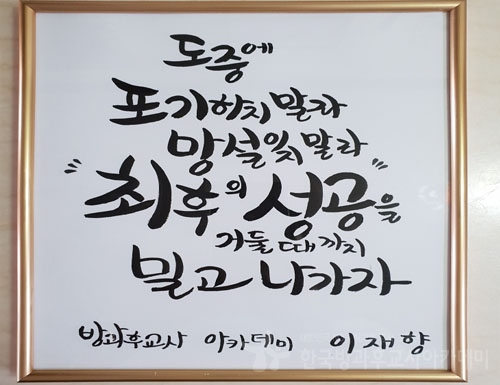 도중에
포기하지 말라
망설이지 말라
"최후의 성공을"
거둘때까지
밀고 나가자
방과후교사 아카데미 이재향
한국방과후교사아카데미